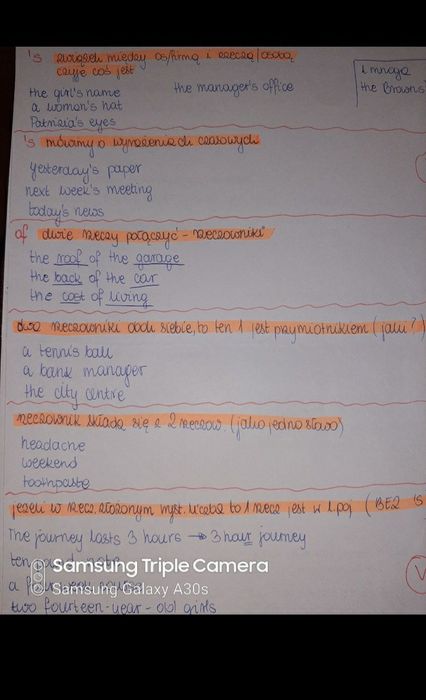 's związek między os/firmą i rzeczą/osobą
czyje coś jest
the girl's name
the manager's office
a woman's hat
Patrizia's eyes
l mnoga
the Browns
's mówimy o wyrażeniach czasowych
yesterday's paper
next week's meeting
today's news
of dwie rzeczy połączyć - rzeczowniki
the roof of the garage
the back of the car
the cost of living
dwa rzeczowniki obok siebie, to ten 1 jest przymiotnikiem (jaki?)
a tennis ball
a bank manager
the city centre
rzeczownik składa się z 2 rzeczow. (jako jedno słowo)
headache
weekend
toothpaste
jeżeli w rzecz. złożonym wyst. liczba to 1 rzecz jest w l. poj (BEZ 's
The journey lasts 3 hours → 3 hour journey
ten
a
two fourteen-year-old girls
Samsung Triple Camera
Samsung Galaxy A30s